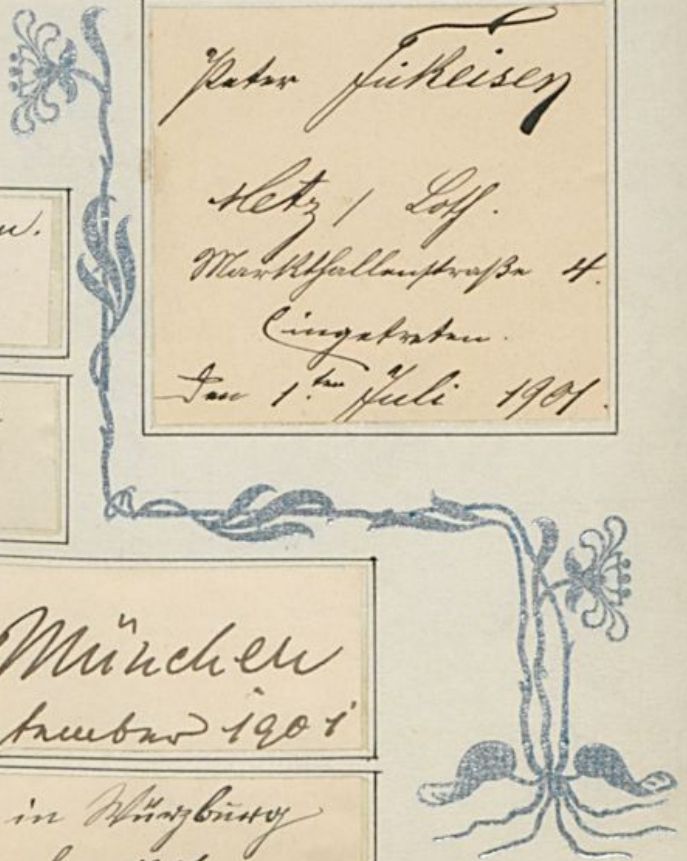 Peter Fikeisen
Metz / Loth.
Markthallenstraße 4.
Eingetreten.
Den 1.ten Juli 1901.
München
tember 1901
in Würzburg